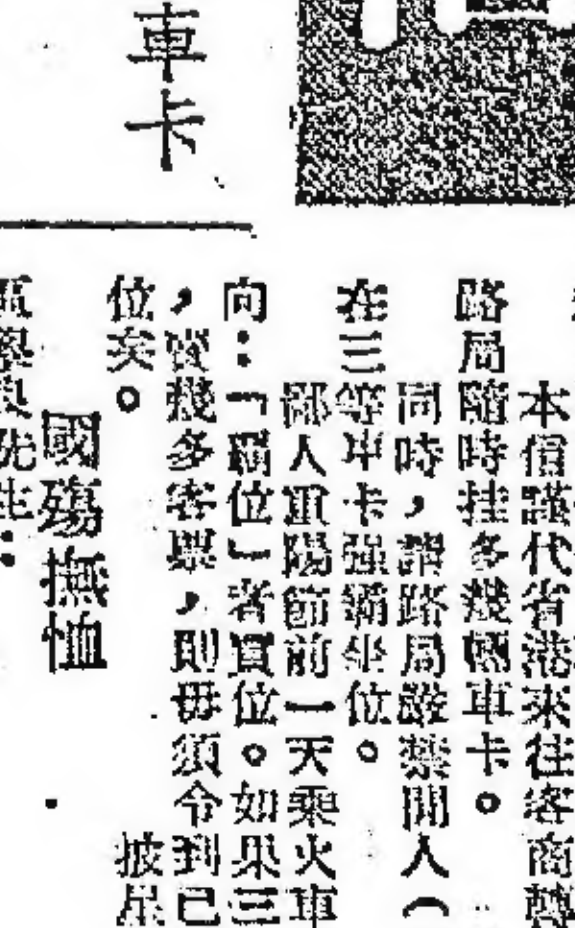 車卡
本信謹代省港來往客商轉
路局隨時挂多幾輛車卡。
同時，請路局嚴禁閒人（
在三等車卡强霸坐位。
鄙人重陽節前一天乘火車
向：「霸位」者買位。如果三
，賣幾多客票，則毋須令到已
位矣。
披星
國殤撫恤
先生：